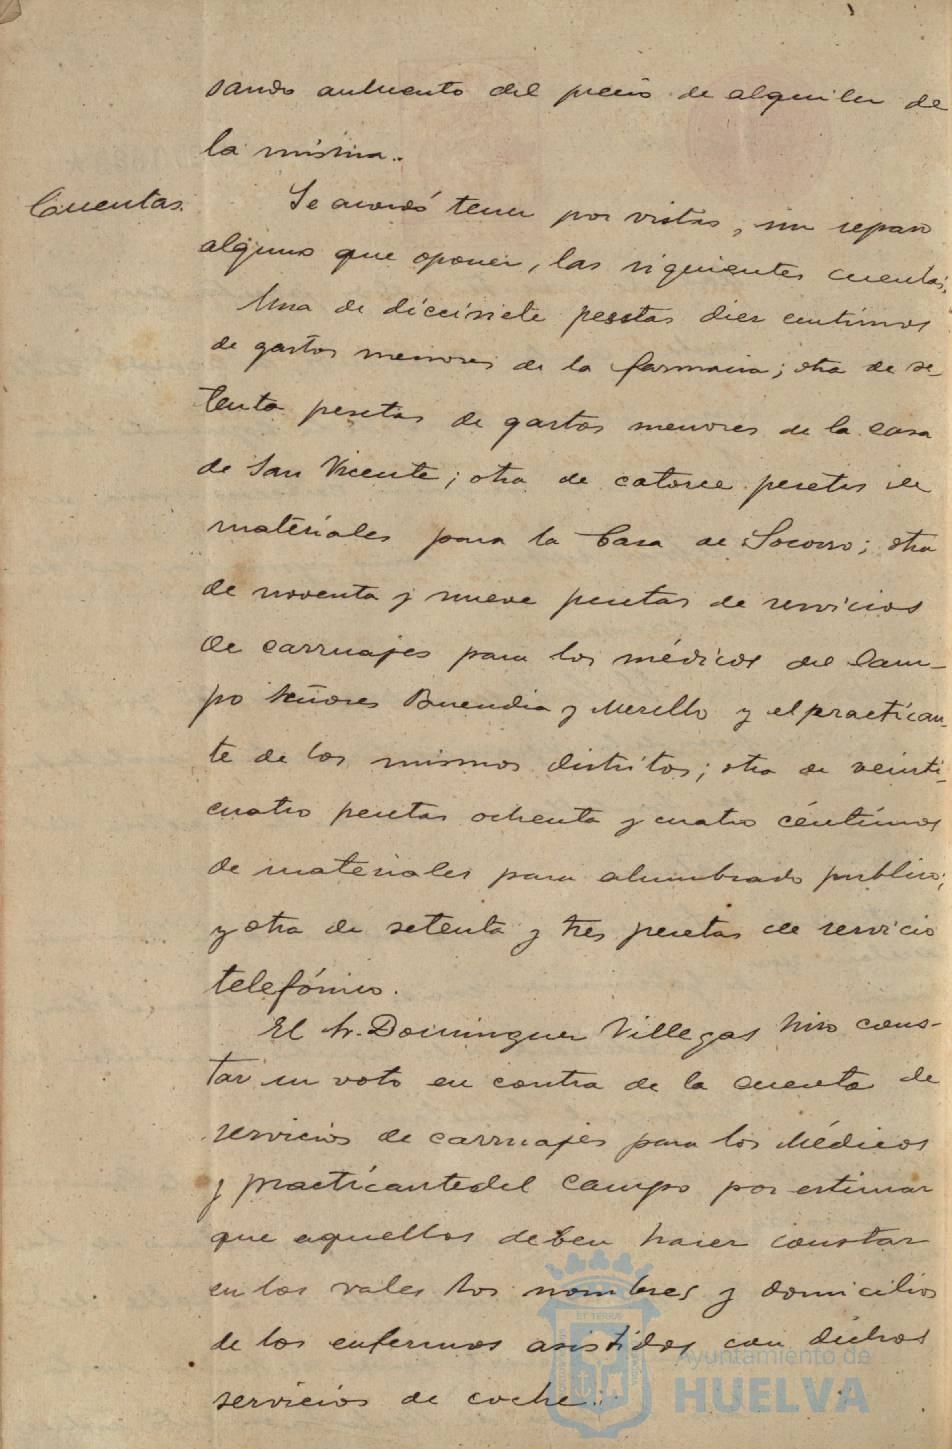 sando aumento del precio de alquiler de
la misma..
Cuentas.
Se acordó tener por vistas, sin reparo
alguno que oponer, las siguientes cuentas.
Una de diecisiete pesetas diez centimos
de gastos menores de la farmacia; otra de se-
tenta pesetas de gastos menores de la casa
de San Vicente; otra de catorce pesetas de
materiales para la Casa de Socorro; otra
de noventa y nueve pesetas de servicios
de carruajes para los médicos del Cam-
po Señores Buendia y Merello y el practican-
te de los mismos distritos; otra de veinti-
cuatro pesetas ochenta y cuatro céntimos
de materiales para alumbrado publico;
y otra de setenta y tres pesetas de servicio
telefónico.
El Sr. Dominguez Villegas hizo cons-
tar su voto en contra de la cuenta de
servicios de carruajes para los Médicos
y practicante del Campo por estimar
que aquellos deben hacer constar
en los vales los nombres y domicilios
de los enfermos asistidos con dichos
servicios de coche..
Ayuntamiento de
HUELVA